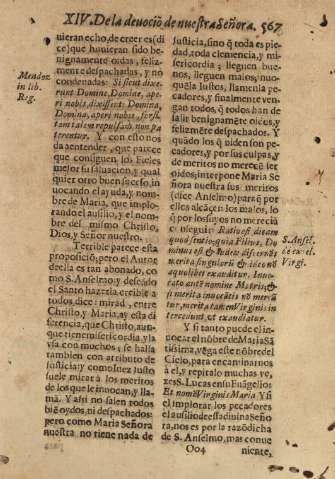 XIV. De la deuociō de nuestra Señora. 567
uieran echo, de creer es (di
ce) que huuieran sido be-
nignamente oidas, feliz-
mente despachadas, y no
condenadas: Si sicut dixe-
runt Domine, Domine, ape-
ri nobis, dixissent Domina,
Domina, aperi nobis, forsi-
tam talem repulsam non pa
terentur. Y con esto nos
da a entender, que parece
que consiguen los Fieles
mejor su saluacion, y qual
quier otro buen sucesso, in
uocando el ayuda, y nom-
bre de Maria, que implo-
rando el ausilio, y el nom-
bre del mismo Christo,
Dios, y Señor nuestro.
Terrible parece esta
proposiciō, pero el Autor
de ella es tan abonado, co
mo S. Anselmo, y deseādo
el Santo hazerla creible a
todos, dice: mirad, entre
Christo, y Maria, ay esta di
ferencia, que Christo, aun-
que tiene misericordia, y la
vsa con muchos, se halla
tambien con atributo de
Justicia; y como Iuez Justo
suele mirar a los meritos
de los que le inuocan, y lla
mā. Y assi no salen todos
biē oydos, ni despachados:
pero como Maria Señora
nuestra no tiene nada de
Mendoz
in lib.
Reg.
Justicia, sino q̄ toda es pie-
dad, toda clemencia, y mi-
sericordia: lleguen bue-
nos, lleguen malos, nunca
quella Iustos, llamenla pe
cadores, y finalmente ven-
gan todos, q̄ todos han de
salir benignamēte oidos, y
felizmēte despachados. Y
quādo los q̄ piden son pe-
cadores, y por sus culpas, y
de meritos no merecē ser
oidos; interpone Maria Se
ñora nuestra sus meritos
(dice Anselmo) para q̄ por
ellos alcācen los malos, lo
q̄ por los suyos no merecíā
conseguir
S. Ansel.
Virgi.
Y si tanto puede el in-
uocar el nōbre de Maria Sā
tissima, vega este nōbre del
Cielo, para encaminarnos
a él, y repitalo muchas ve-
zes S. Lucas en su Euāgelio:
Et nomē Virginis Maria. Y si
el implorar los pecadores
el ausilio de esta diuina Seño
ra, nos es por la razō dicha
de S. Anselmo, mas conue
Oo4 niente,